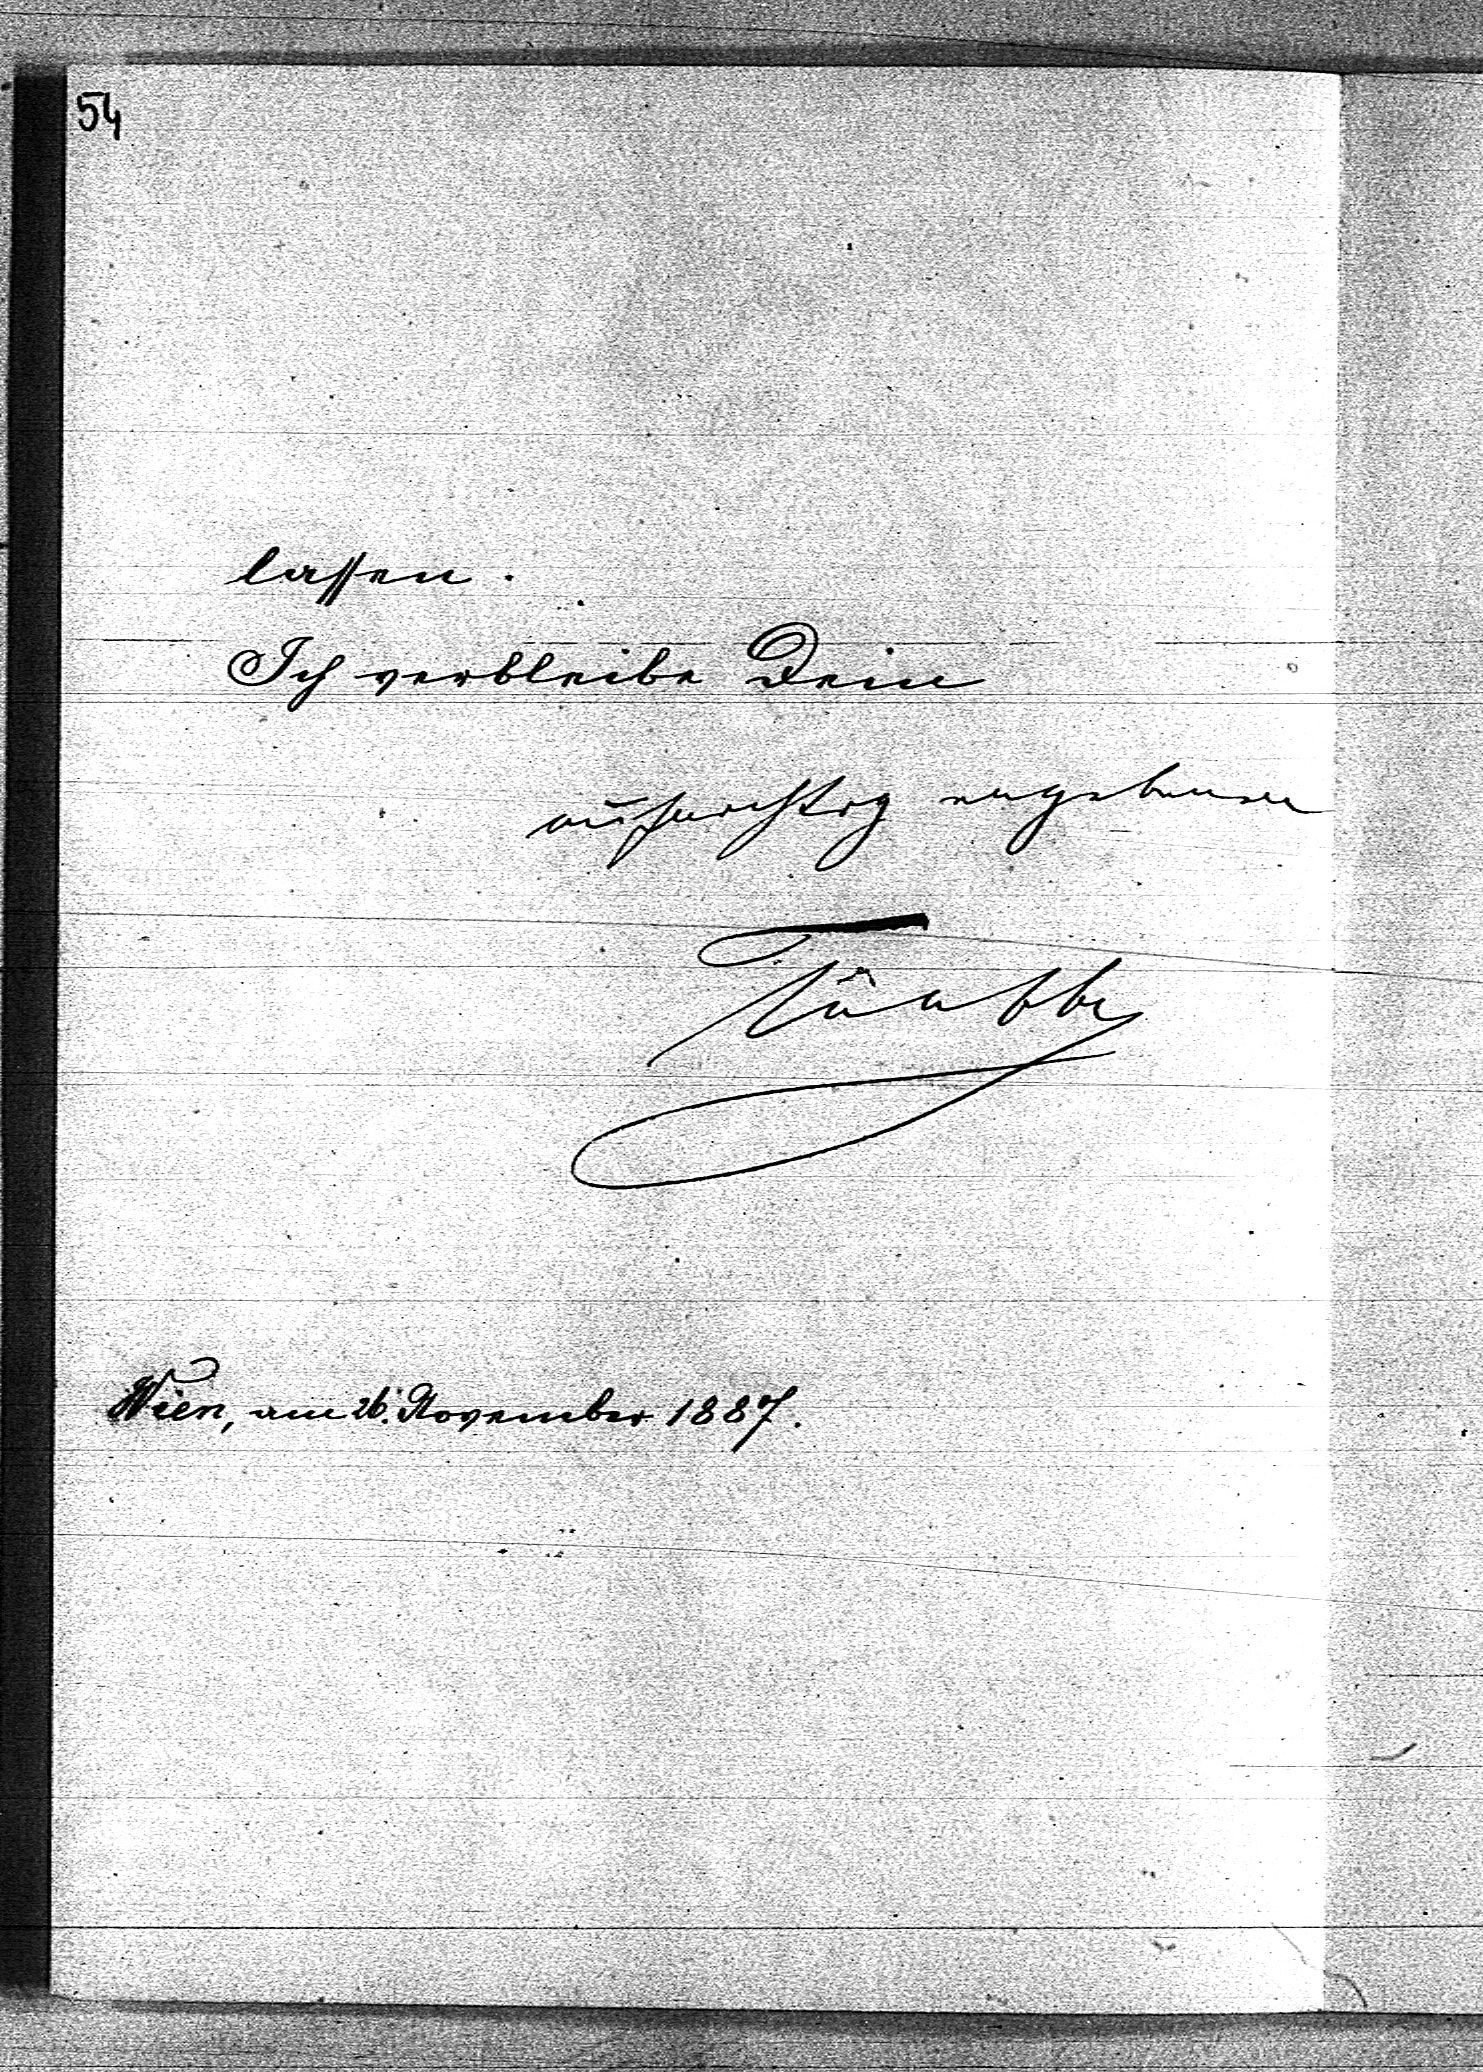 54
lassen.
Ich verbleibe Dein
aufrichtig ergebener
Taaffe
Wien, am 26. November 1887.